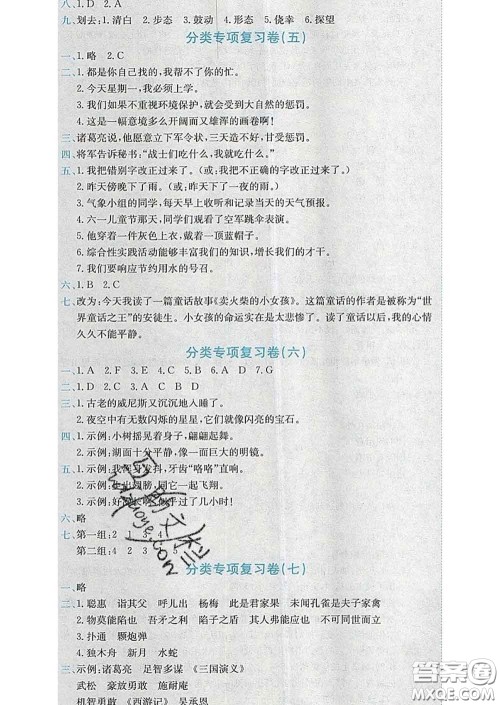 八、1. D　2. A
九、划去:1. 清白　2. 步态　3. 鼓动　4. 形态　5. 侥幸　6. 探望
分类专项复习卷(五)
一、1. 略　2. C
二、1. 都是你自己找的,我帮不了你的忙。
2. 今天星期一,我必须上学。
3. 我们如果不重视环境保护,就会受到大自然的惩罚。
4. 这是一幅意境多么开阔而又雄浑的画卷啊!
三、诸葛亮说,他愿意立下军令状,三天造不好,甘受惩罚。
四、将军告诉秘书:“战士们吃什么,我就吃什么。”
五、1. 我把错别字改正过来了。(或:我把不正确的字改正过来了。)
2. 昨天傍晚下了雨。(或:昨天下了一夜的雨。)
3. 气象小组的同学,每天早上收听和记录当天的天气预报。
4. 六一儿童节那天,同学们观看了空军跳伞表演。
5. 他穿着一件灰色上衣,戴着一顶蓝帽子。
6. 综合性实践活动能够丰富我们的知识,增长我们的才干。
7. 我们要响应节约用水的号召。
六、1. B　2. C
七、改为:今天我读了一篇童话故事《卖火柴的小女孩》。这篇童话的作者是被称为“世
界童话之王”的安徒生。小女孩的命运实在是太悲惨了。读了童话以后,我的心情
久久不能平静。
分类专项复习卷(六)
一、1. A　2. F　3. E　4. C　5. B　6. D　7. G
二、1. D　2. C　3. A　C　B　D
三、1. 古老的威尼斯又沉沉地入睡了。
2. 夜空中有无数闪烁的星星,它们就像闪亮的宝石。
四、1. 示例:小树摇晃着身子,翩翩起舞。
2. 示例:湖面十分平静,像一面巨大的明镜。
五、1. 示例:我浑身发抖,牙齿“咯咯”直响。
2. 示例:翅膀,同它一起飞翔。
3. 示例:好像过了几小时!
六、略
七、第一组:2　4
第二组:4　2　3　5
分类专项复习卷(七)
一、略
二、1. 聪惠　诣其父　呼儿出　杨梅　此是君家果　未闻孔雀是夫子家禽
2. 物莫能陷也　吾矛之利　陷子之盾　其人弗能应也　不可同世而立
3. 扑通　颗炮弹
4. 独木舟　新月　水蛇
三、示例:诸葛亮　足智多谋　《三国演义》
武松　豪放勇敢　施耐庵
机智勇敢　《西游记》　吴承恩
答案圈
MXQE.COM